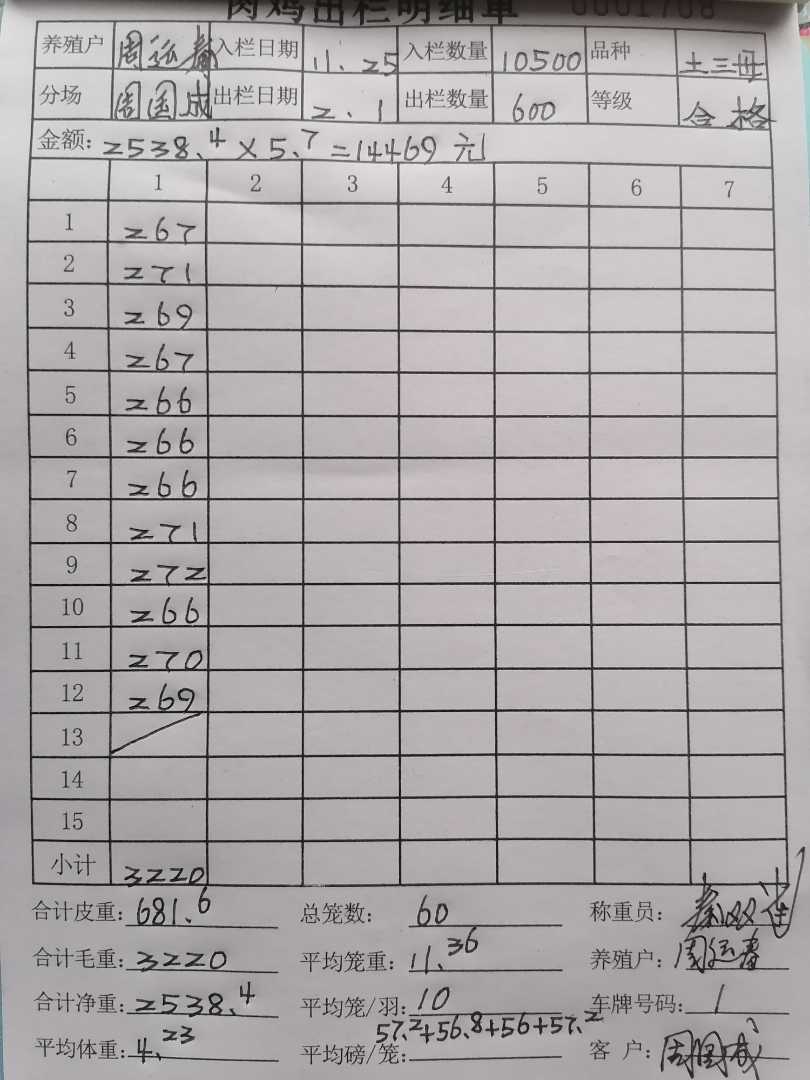 肉鸡出栏明细单 0001708
养殖户 周运春 入栏日期 11.25 入栏数量 10500 品种 土三
分场 周国成 出栏日期 2.1 出栏数量 600 等级 合格
金额: 2538.4 × 5.7 = 14469 元
1 2 3 4 5 6 7
1 267
2 271
3 269
4 267
5 266
6 266
7 266
8 271
9 272
10 266
11 270
12 269
13
14
15
小计 3220
合计皮重: 681.6 总笼数: 60 称重员: 秦双
合计毛重: 3220 平均笼重: 11.36 养殖户: 周运春
合计净重: 2538.4 平均笼/羽: 10 车牌号码: /
平均体重: 4.23 平均磅/笼: 57.2+56.8+56+57.2 客 户: 周国成